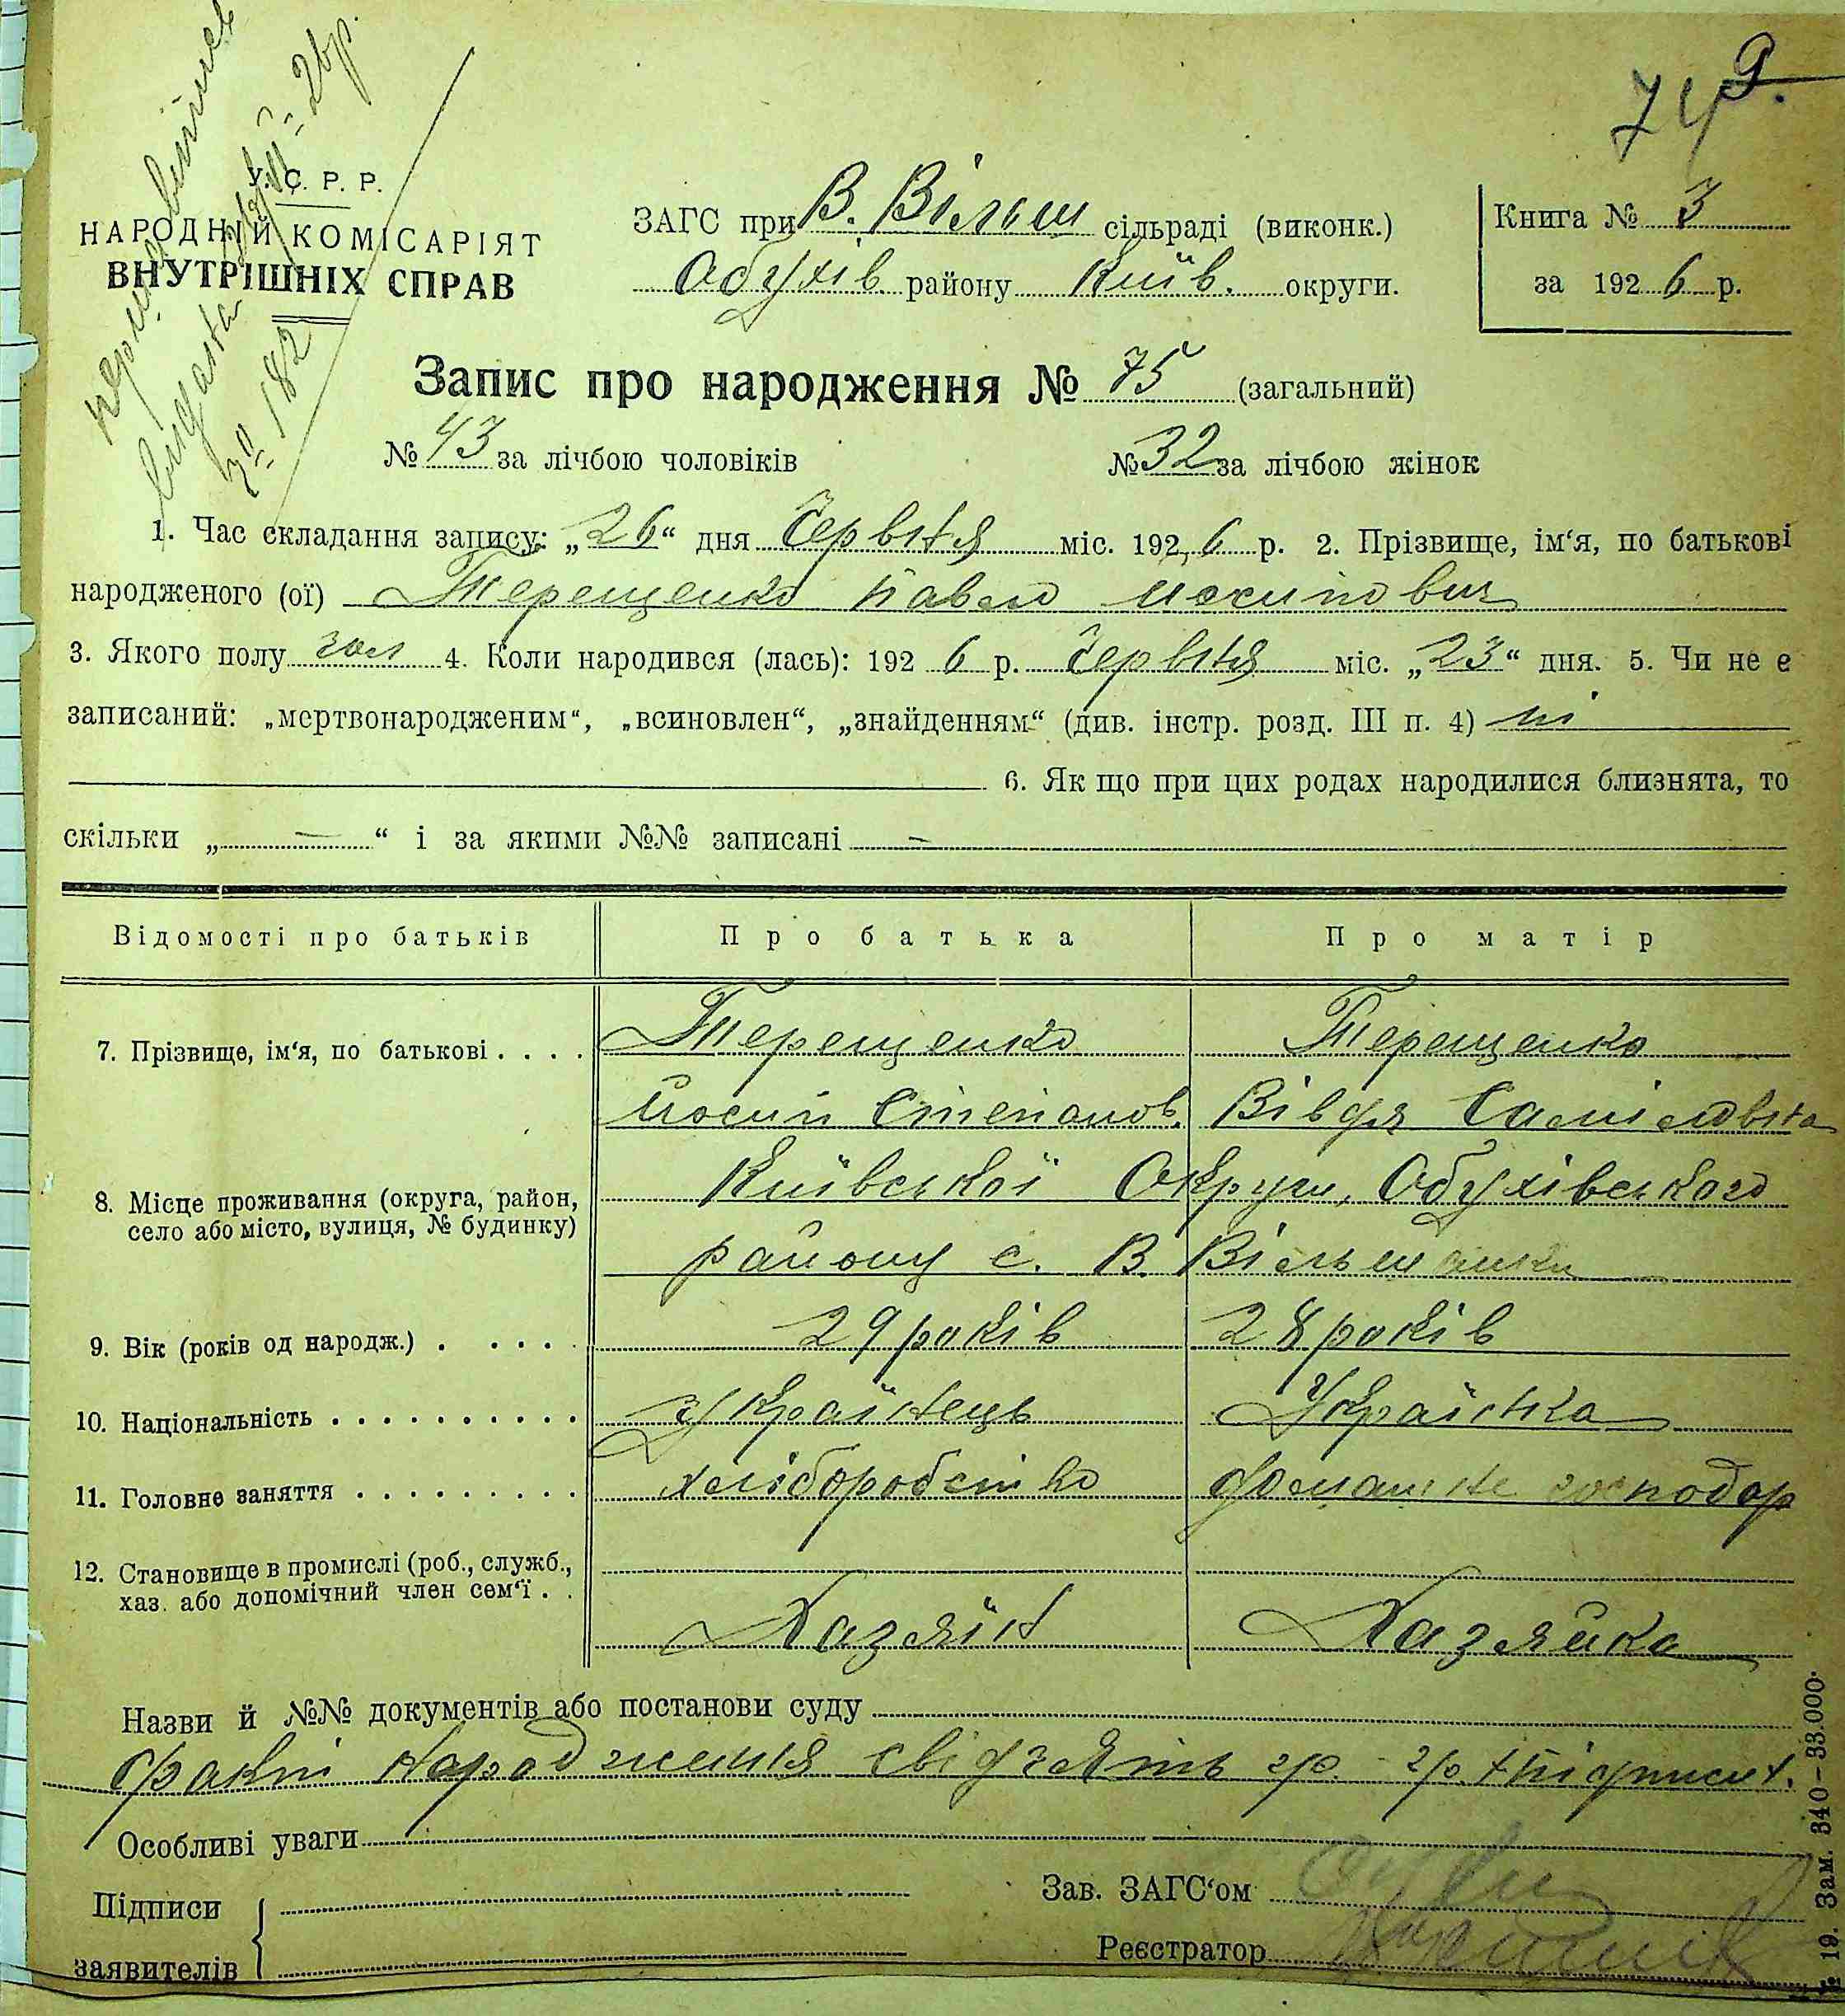 74 9.
У. С. Р. Р.
НАРОДНІЙ КОМІСАРІЯТ
ВНУТРІШНІХ СПРАВ
ЗАГС при В. Вільш сільраді (виконк.)
Обухів. району Київ. округи.
Книга № 3
за 1926 р.
Запис про народження № 75 (загальний)
№ 43 за лічбою чоловіків № 32 за лічбою жінок
1. Час складання запису: „26“ дня Червня міс. 1926 р. 2. Прізвище, ім‘я, по батькові
народженого (ої) Терещенко Павло Иосипович
3. Якого полу чол 4. Коли народився (лась): 1926 р. Червня міс. „23“ дня. 5. Чи не є
записаний: „мертвонародженим“, „всиновлен“, „знайденням“ (див. інстр. розд. III п. 4) ні
6. Як що при цих родах народилися близнята, то
скільки „ — “ і за якими №№ записані —
Відомості про батьків Про батька Про матір
7. Прізвище, ім‘я, по батькові . . . . Терещенко Терещенко
Йосип Степанов. Вівдя Саміловна
8. Місце проживання (округа, район, село або місто, вулиця, № будинку) Київської Округи, Обухівського
району с. В. Вільшанки
9. Вік (років од народж.) . . . . 29 років 28 років
10. Національність . . . . . . . . . . Українець Українка
11. Головне заняття . . . . . . . . . хліборобство домашнє господар
12. Становище в промислі (роб., служб.,
хаз. або допомічний член сем‘ї . . Хазяїн Хазяйка
Назви й №№ документів або постанови суду
факт народження свідчать гр. - гр.
Особливі уваги
Підписи
заявителів
Зав. ЗАГС‘ом
Реєстратор
№ 19. Зам. 340–33.000.